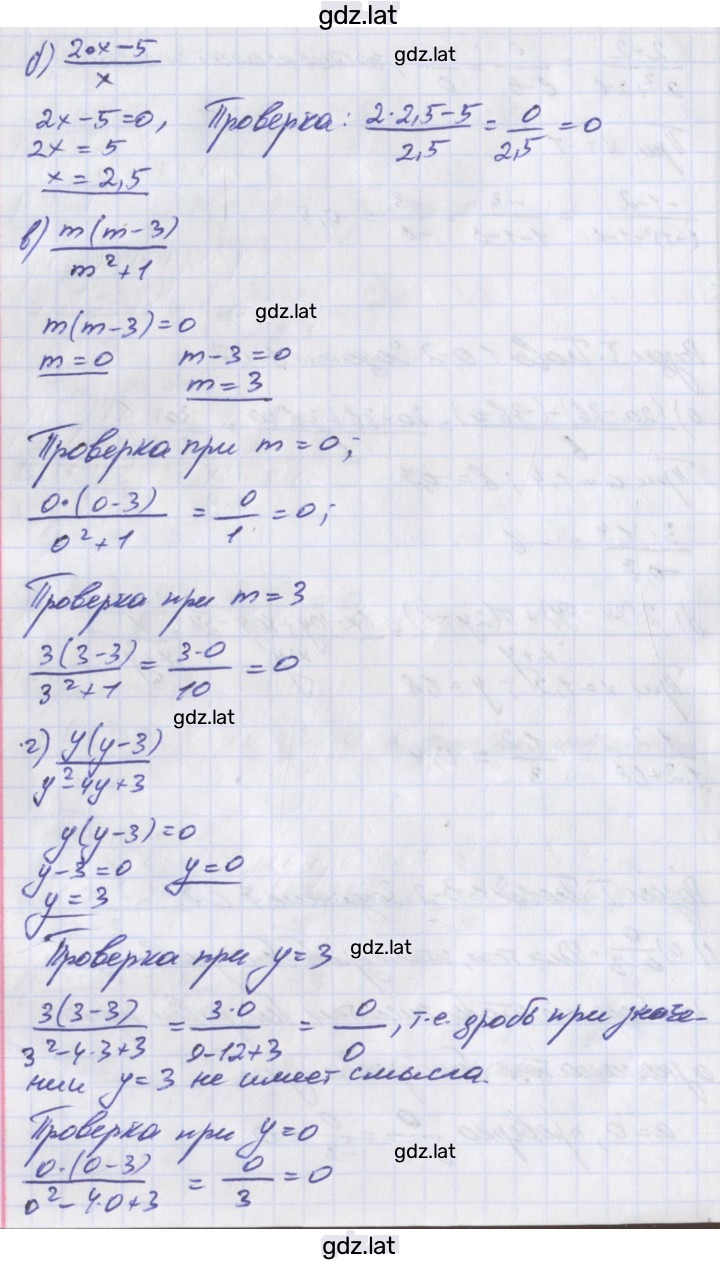 gdz.lat
б) (2·x−5)/x
gdz.lat
2x−5=0, Проверка: (2·2,5−5)/2,5 = 0/2,5 = 0
2x = 5
x = 2,5
в) m(m−3)/(m²+1)
gdz.lat
m(m−3)=0
m=0 m−3=0
m=3
Проверка при m=0;
0·(0−3)/(0²+1) = 0/1 = 0;
Проверка при m=3
3(3−3)/(3²+1) = 3·0/10 = 0
gdz.lat
г) y(y−3)/(y²−4y+3)
y(y−3)=0
y−3=0 y=0
y=3
Проверка при y=3
gdz.lat
3(3−3)/(3²−4·3+3) = 3·0/(9−12+3) = 0/0, т.е. дробь при значе-
нии y=3 не имеет смысла.
Проверка при y=0
gdz.lat
0·(0−3)/(0²−4·0+3) = 0/3 = 0
gdz.lat